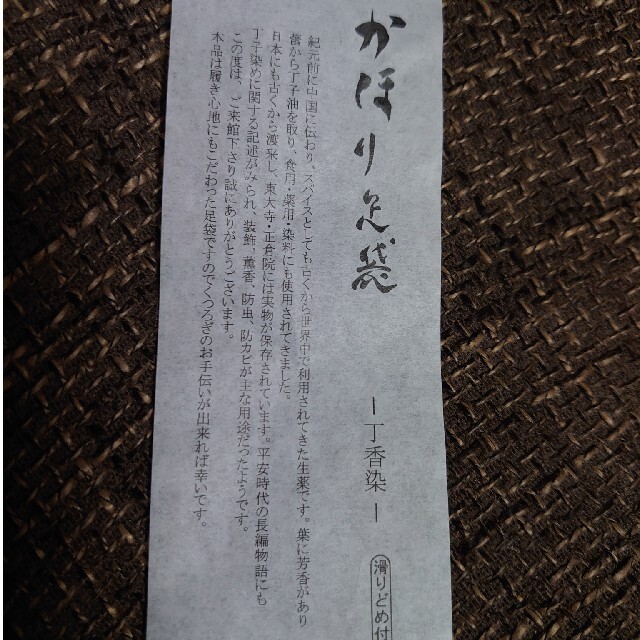 かほり足袋
ー丁香染ー
滑りどめ付
紀元前に中国に伝わり、スパイスとしても古くから世界中で利用されてきた生薬です。葉に芳香があり
蕾から丁子油を取り、食用・薬用・染料にも使用されてきました。
日本にも古くから渡来し、東大寺・正倉院には実物が保存されています。平安時代の長編物語にも
丁子染めに関する記述がみられ、装飾、薫香、防虫、防カビが主な用途だったようです。
この度は、ご来館下さり誠にありがとうございます。
本品は履き心地にもこだわった足袋ですのでくつろぎのお手伝いが出来れば幸いです。